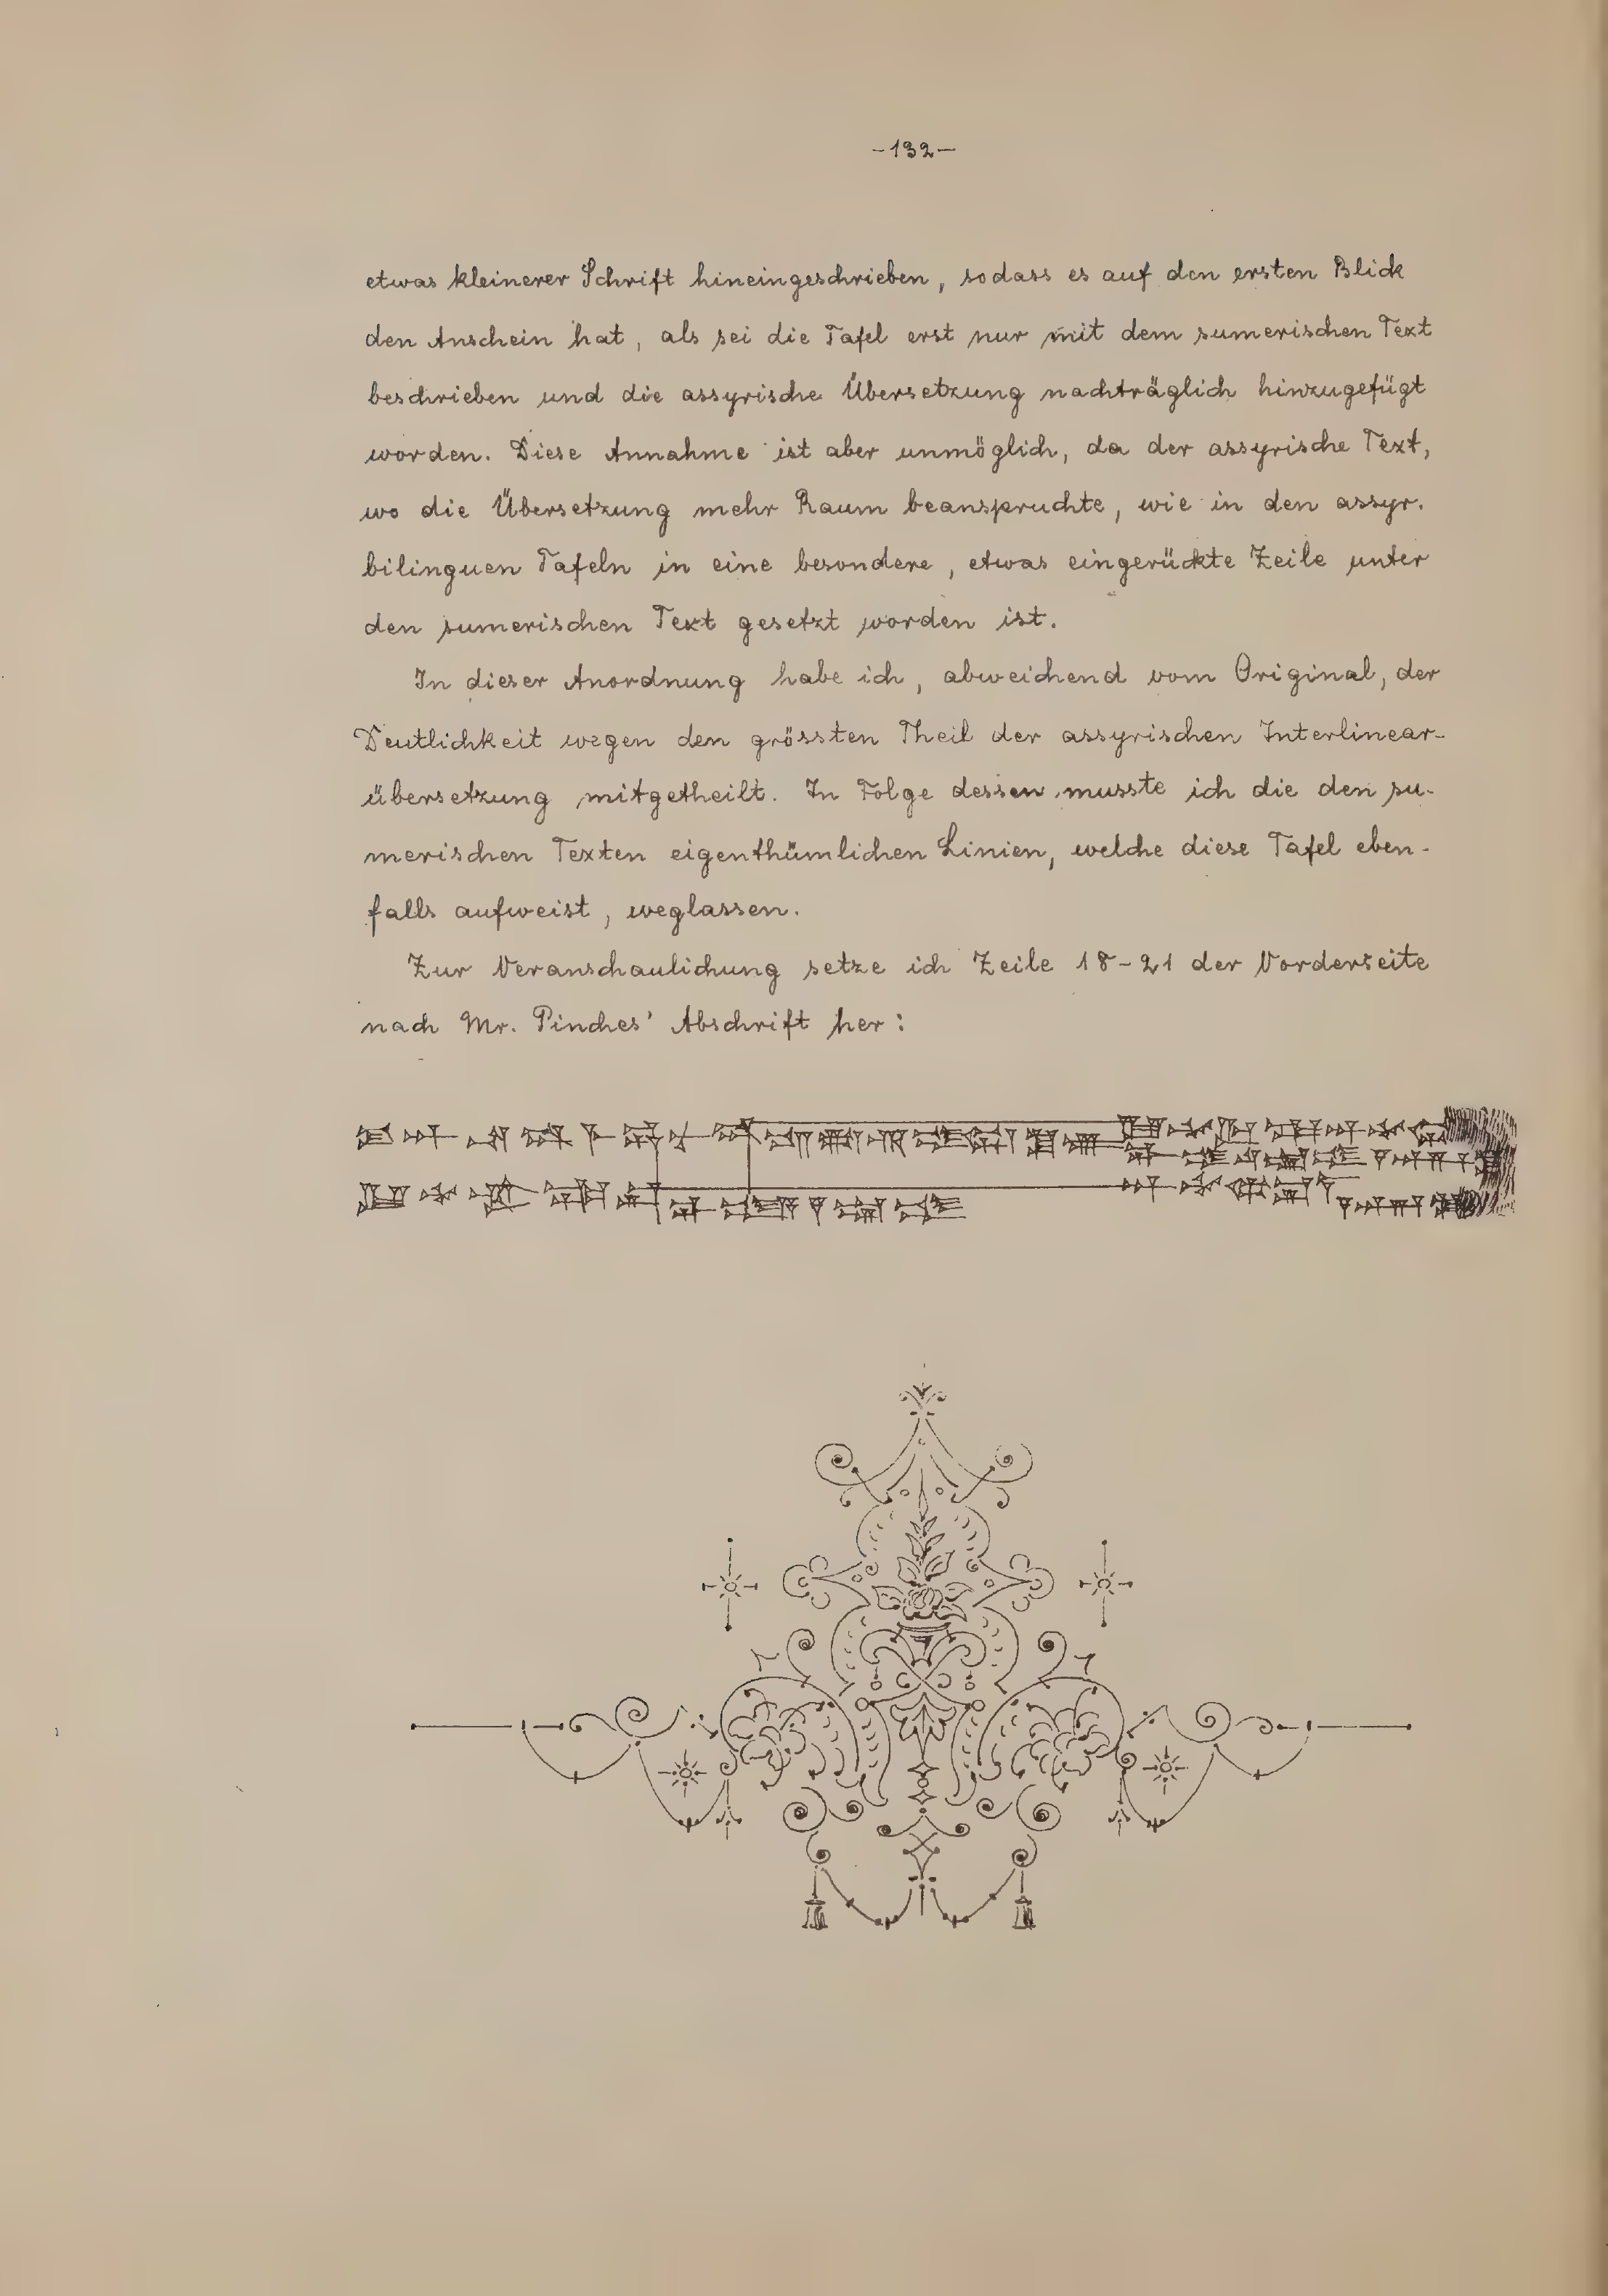 -132-
etwas kleinerer Schrift hineingeschrieben, sodass es auf den ersten Blick
den Anschein hat, als sei die Tafel erst nur mit dem sumerischen Text
beschrieben und die assyrische Übersetzung nachträglich hinzugefügt
worden. Diese Annahme ist aber unmöglich, da der assyrische Text,
wo die Übersetzung mehr Raum beanspruchte, wie in den assyr.
bilinguen Tafeln in eine besondere, etwas eingerückte Zeile unter
den sumerischen Text gesetzt worden ist.
In dieser Anordnung habe ich, abweichend vom Original, der
Deutlichkeit wegen den grössten Theil der assyrischen Interlinear-
übersetzung mitgetheilt. In Folge dessen musste ich die den su-
merischen Texten eigenthümlichen Linien, welche diese Tafel eben-
falls aufweist, weglassen.
Zur Veranschaulichung setze ich Zeile 18-21 der Vorderseite
nach Mr. Pinches' Abschrift her: